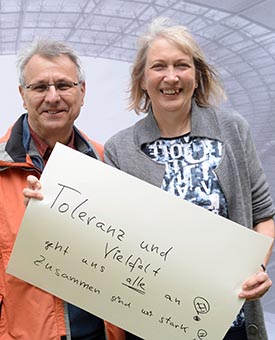 Toleranz und
Vielfalt
geht uns alle an!
Zusammen sind wir stark